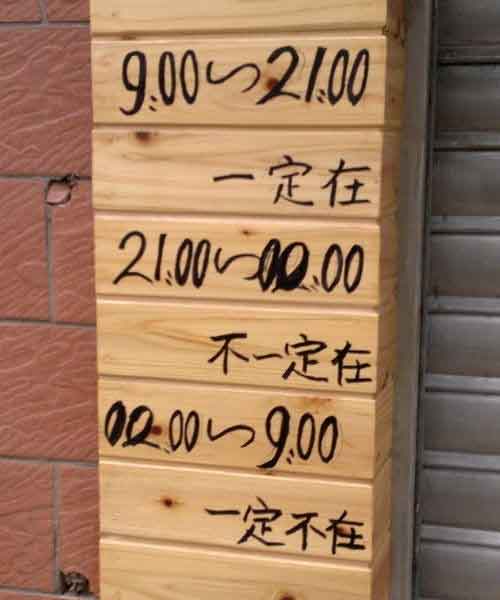 9:00~21:00
一定在
21:00~00:00
不一定在
00:00~9:00
一定不在